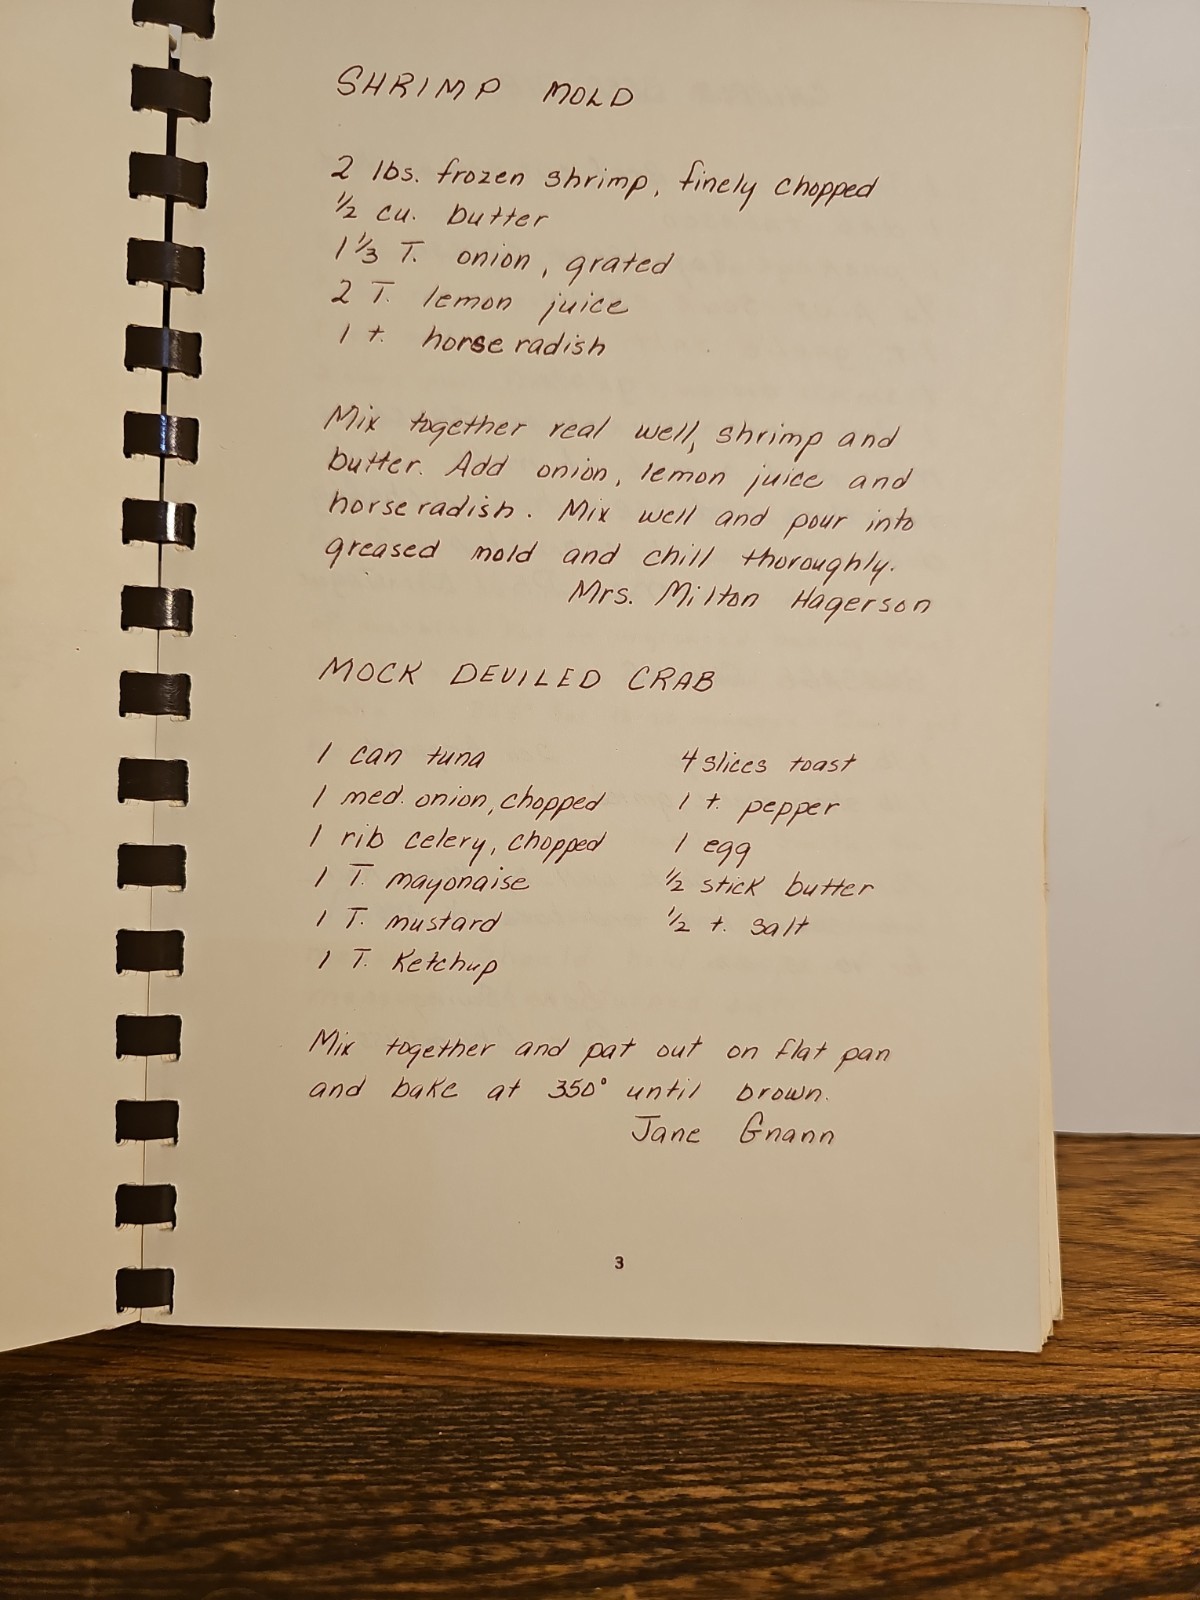 SHRIMP MOLD
2 lbs. frozen shrimp, finely chopped
½ cu. butter
1 ⅓ T. onion, grated
2 T. lemon juice
1 t. horse radish
Mix together real well, shrimp and
butter. Add onion, lemon juice and
horse radish. Mix well and pour into
greased mold and chill thoroughly.
Mrs. Milton Hagerson
MOCK DEVILED CRAB
1 can tuna
1 med. onion, chopped
1 rib celery, chopped
1 T. mayonaise
1 T. mustard
1 T. Ketchup
4 slices toast
1 t. pepper
1 egg
½ stick butter
½ t. salt
Mix together and pat out on flat pan
and bake at 350° until brown.
Jane Gnann
3